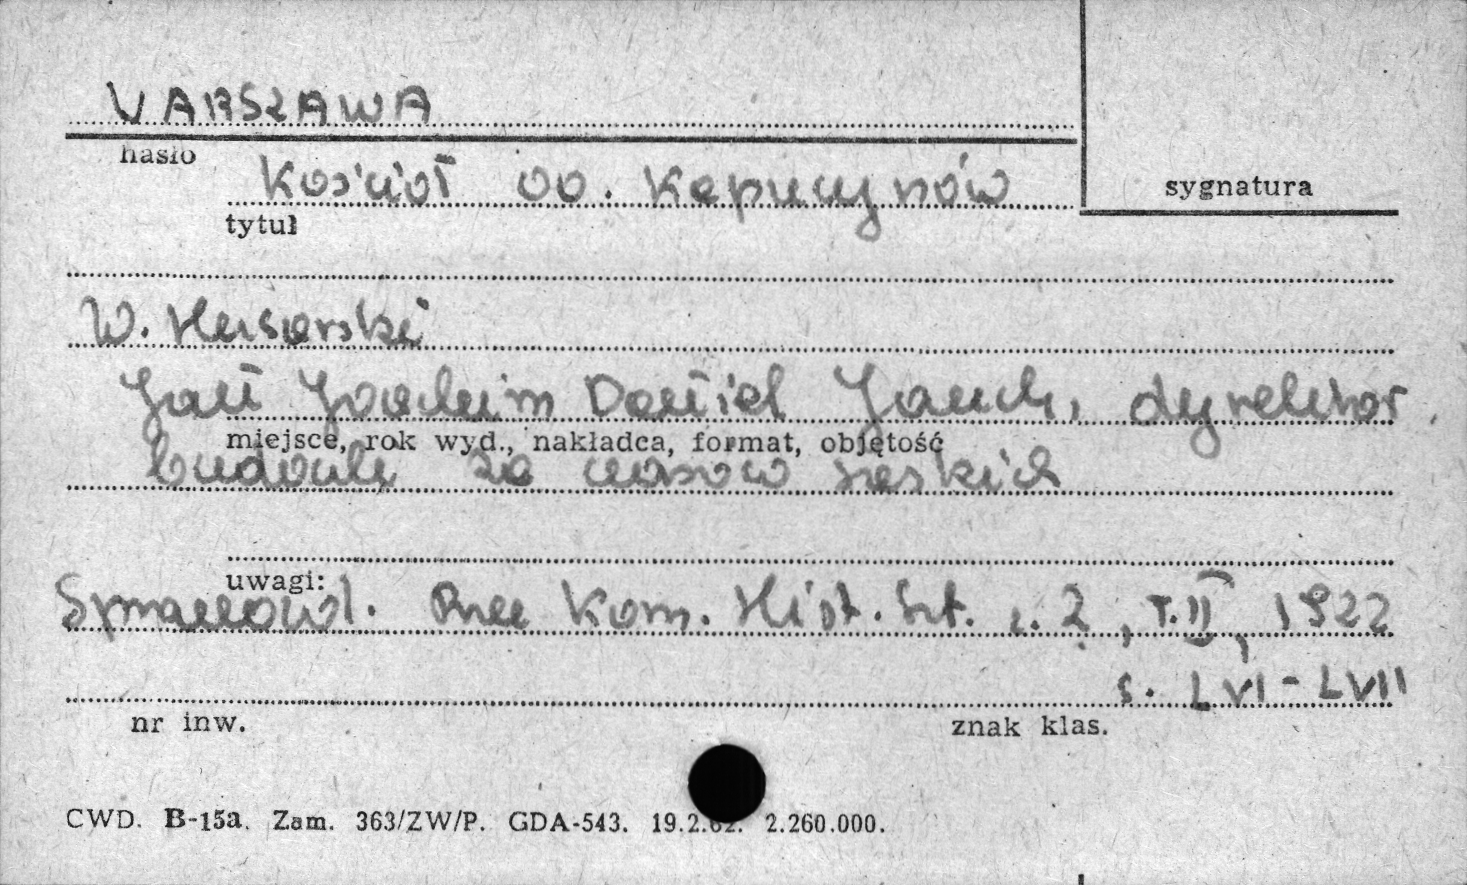 WARSZAWA
hasło
sygnatura
Kościół oo. Kapucynów
tytuł
W. Husarski
Jan Joachim Daniel Jauch, dyrektor
miejsce, rok wyd., nakładca, format, objętość
budowli za czasów saskich
uwagi:
Sprawozd. Prac Kom. Hist. Szt. z. 2, T. II, 1922
s. LVI - LVII
nr inw.
znak klas.
CWD. B-15a. Zam. 363/ZW/P. GDA-543. 19.2.62. 2.260.000.